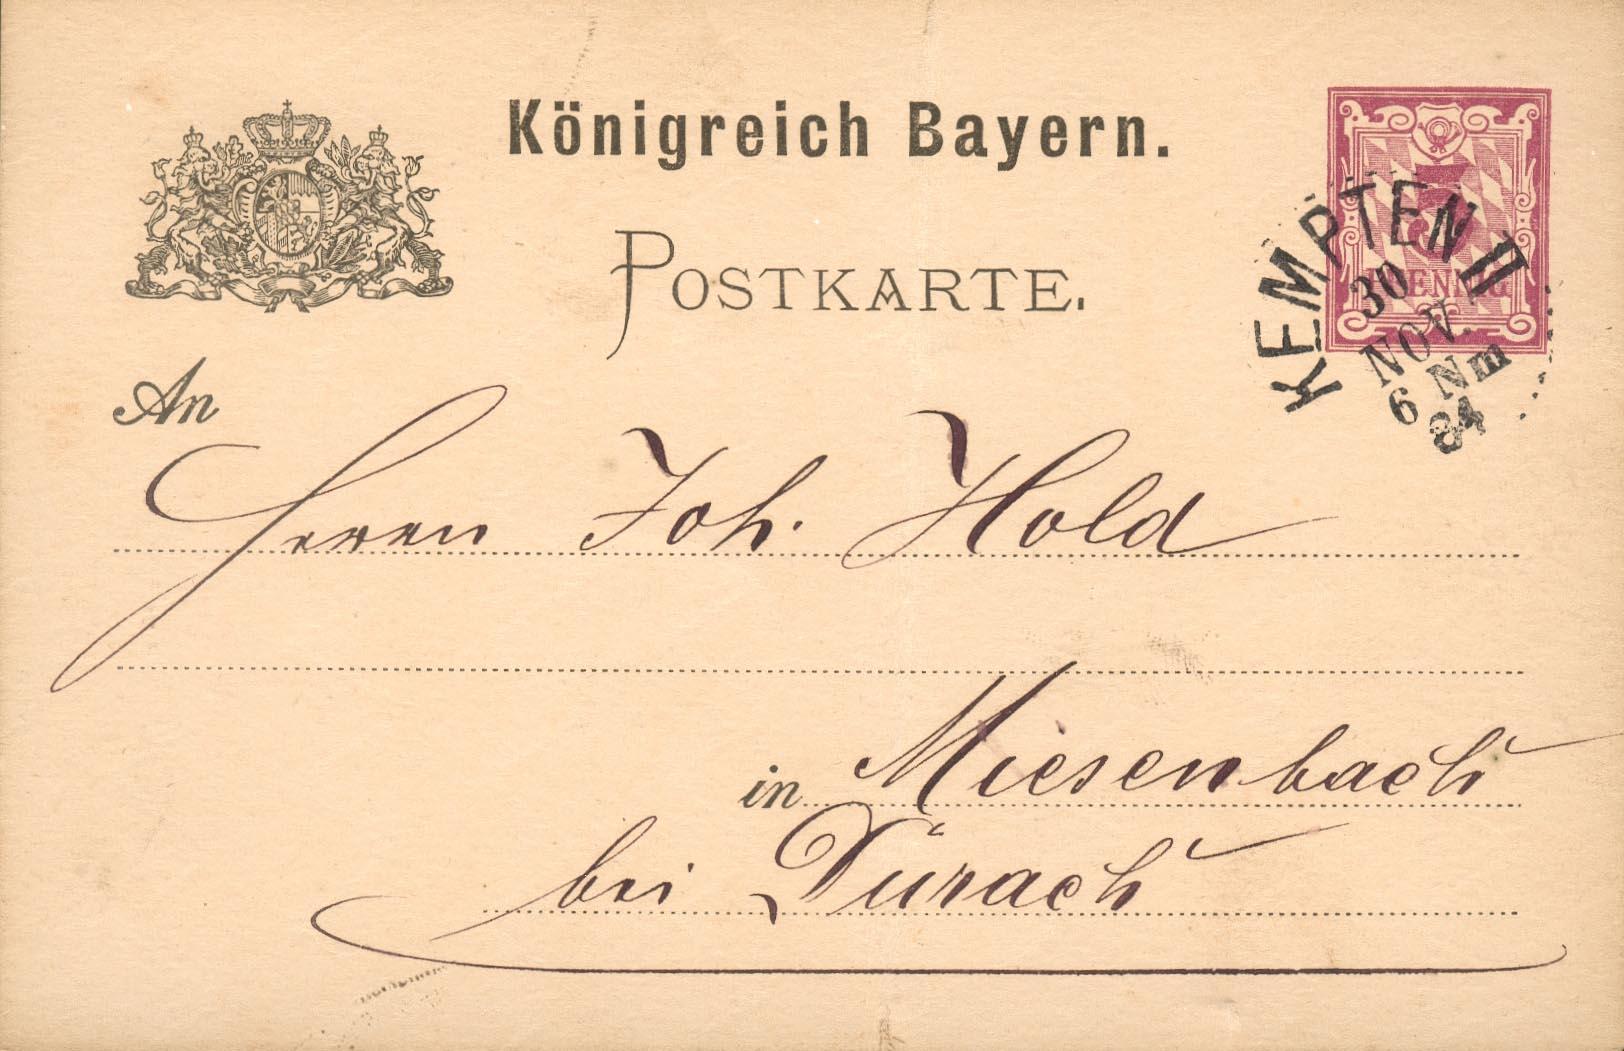 Königreich Bayern.
POSTKARTE.
5
PFENNIG
KEMPTEN II
30
NOV.
6 Nm
84
An
Herren Joh. Hold
in Miesenbach
bei Durach